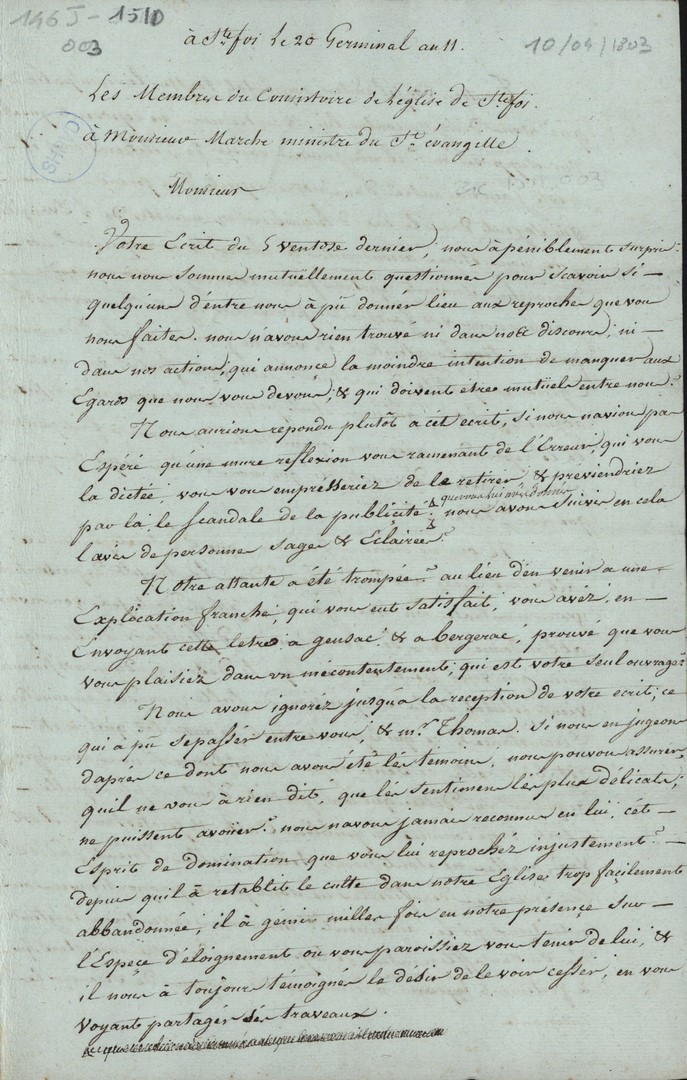 146 J - 1510
003
10/04/1803
à Ste foi Le 20 Germinal an 11.
Les Membres du Consistoire de L'église de Ste foi.
à Monsieur Marche ministre du St évangille.
SHPVD
Monsieur
Votre Ecrit du 5 ventose dernier, nous à péniblement surpris.
nous nous sommes mutuellement questionnés pour scavoir si
quelqu'un d'entre nous à pû donnér lieu aux reproches que vous
nous faites. nous n'avons rien trouvé ni dans nos discours, ni
dans nos actions, qui annonce la moindre intention de manquer aux
Egards que nous vous devons, & qui doivent etre mutüels entre nous.
Nous aurions repondu plutôt a cét ecrit, si nous navions pas
Espéré qu'une mure reflexion vous ramenant de l'Erreur, qui vous
la dictée, vous vous emprésseriez de le retirer & préviendriez
par là, le scandale de la publicité que vous lui avés donnée. nous avons suivis en cela
l'avis de personnes sages & Eclairées.
Notre attante a été trompée. au lieu d'en venir a une
Explocation franche, qui vous eut satisfait, vous avéz, en
Envoyant cette letre a gensac, & a bergerac, prouvé que vous
vous plaisiez dans un mécontentement, qui est votre seul ouvrage.
Nous avons ignoréz jusqu'a la reception de votre écrit, ce
qui à pû sepassér entre vous, & mr. Thomas. Si nous en jugeons
d'après ce dont nous avons étés les témoins, nous pouvons assurer,
quil ne vous à rien dit, que lés sentimens lés plus délicats,
ne puissent avoüer. nous navons jamais reconnus en lui, cét
Esprit de domination que vous lui reprochéz injustement.
depuis quil à retablit le culte dans notre Eglise, trop façilement
abbandonnée, il à gémis milles fois en notre présence sur
l'Espeçe d'éloignement où vous paroissiez vous tenir de lui, &
il nous à toujours témoignés le désir de le voir cessér, en vous
voyant partager sés travaux.